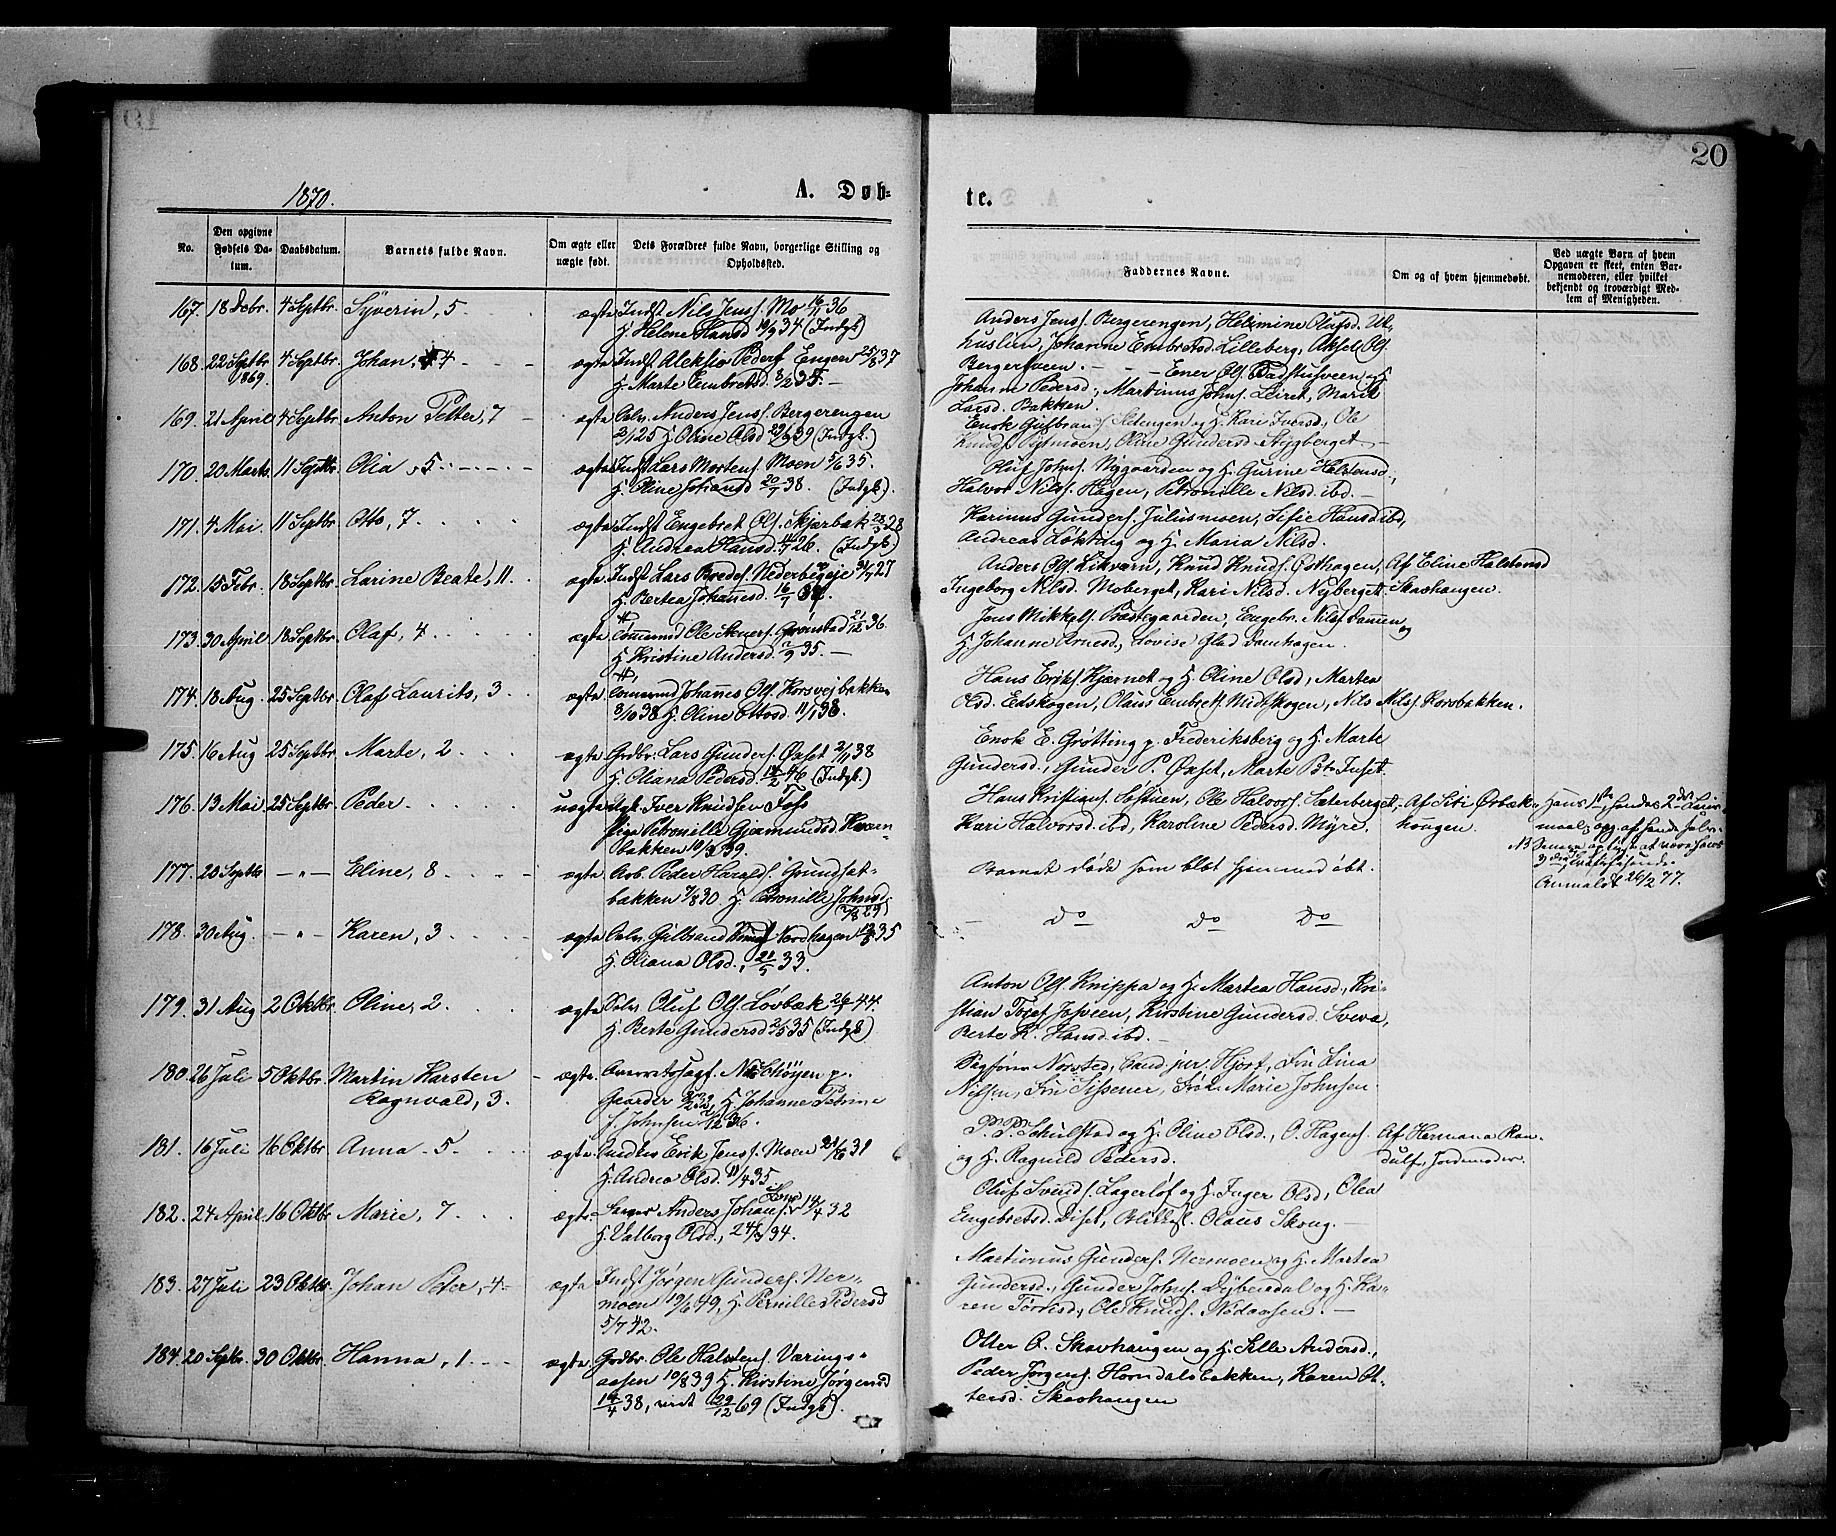 20
1870.
A. Døb-
te.
No.
Den opgivne Fødsels Da-tum.
Daabsdatum.
Barnets fulde Navn.
Om ægte eller uægte født.
Dets Forældres fulde Navn, borgerlige Stilling og Opholdssted.
Faddernes Navne.
Om og af hvem hjemmedøbt.
Ved uægte Børn af hvem Opgaven er skeet, enten Bar-nemoderen, eller hvilket bekjendt og troværdigt Med-lem af Menigheden.
167. 18 Debr. 4 Septbr. Syverin, 5 ægte Indst Nils Jens. Mo 16/11 36
H. Helene Hansd 19/9 34 (Indgk)
Anders Jens. Bergerengen, Helmine Olafsd. Ut-
huslien, Johanne Embretsd. Lilleberg, Aksel Ols.
Bergersveen.
168. 22 Septbr 1869. 4 Septbr. Johan, 4 ægte Inds. Aleksio Peders. Engen 25/8 37
H. Marte Embretsd. 8/2 35.
Ener Ols. Badstusveen og H.
Johanne Pedersd., Martinus Johns. Leiret, Marit
Larsd. Bakken.
169. 21 April 4 Septbr. Anton Petter, 7 ægte Anders Jens. Bergerengen
2/1 25 H. Oline Olsd 29/9 39 (Indgk.)
Enok Gulbrands. Sletengen og H. Kari Iversd., Ole
Knuds. Oline Gundersd. Stygberget.
170. 20 Marts 11 Septbr. Olia, 5 ægte Indst Lars Mortens. Moen 5/6 35.
H. Oline Johansd 20/7 38. (Indgk).
Oluf Johns. Nygaarden og H. Gurine Halstensd.,
Halvor Nils. Hagen, Petronille Nilsd. ibd.
171. 4 Mai. 11 Septbr. Otto, 7 ægte Indst Engebret Ols. Skjærbæk 28/3 28
H. Andrea Hansd. 26. (Indgk)
Karinus Gunders. Julusmoen, Sefie Hansd ibd,
Andreas Løkting og H. Maria Nilsd.
172. 15 Febr. 18 Septbr. Larine Beate, 11. ægte Indst Lars Bredes. Nederbigseje 31/7 27
H. Bertea Johannesd. 16/7
Anders Ols. Likværn, Knud Knuds. Østhagen,
Ingeborg Nilsd. Moberget, Kari Nilsd. Nyberget.
Af Eline Halstensd
Skavhaugen.
173. 30 April 18 Septbr. Olaf, 4 ægte Ole Grønstad 21/12 36
H. Kristine Andersd. 7/9 35.
Jens Mikkels. Præstegaarden, Engebr. Nils. Dammen og
H. Johanne Arnesd., Lovise Damhagen.
174. 18 Aug. 25 Septbr. Olaf Laurits, 3 ægte Johannes Ols. Korsvejbakken
8/10 38 H. Oline Ottosd. 11/1 38.
Hans Eriks. Hjærnet og H. Oline Olsd, Martea
Olsd. Eidskogen, Olaus Embrets. Midtskogen, Nils Nils. Korsbakken.
175. 16 Aug 25 Septbr. Marte, 2 ægte Grdbr. Lars Gunders. Øxset 2/1 38
H. Oliana Pedersd. 14/2 46 (Indgk.)
Enok E. Grøtting p. Frederiksberg og H. Marte
Gundersd., Gunder P. Øxset, Marte Tuset.
176. 13 Mai 25 Septbr. Peder uægte Ugk. Iver Knudsen Fos
Pige Petronille Gjermundsd. Kværn-
bakken 10/3 39.
Hans Kristians. Løstuen, Ole Halvors. Sæterberget,
Kari Halvorsd. ibd, Karoline Pedersd. Myre.
Af Siri Ørbæk-
haugen.
Hans 1ste, hendes 2det Leier-
maal, opg. af hende selv.
Anmeldt 26/2 77.
177. 20 Septbr -"- Eline, 8 ægte Arb. Peder Haralds. Grundset-
bakken 7/8 30 H. Petronille Johnsd.
(7/8 29)
Barnet døde som blot hjemmedøbt.
178. 30 Aug. -"- Karen, 3 ægte Gulbrand Nordhagen 35
H. Oliana Olsd., 21/5 33.
Do Do Do
179. 31 Aug 2 Oktbr. Oline, 2 ægte Selv. Oluf Ols. Løvbæk 26/7 44.
H. Berte Gundersd. 35 (Indgk)
Anton Ols. Knippa og H. Martea Hansd., Kri-
stian Josveen, Kirstine Gundersd. Sveva,
Berte K. Hansd. ibd.
180. 26 Juli 5 Oktbr. Martin Karsten ægte Overretssagf. Nils Høyen p.
Ragnvald, 3. Gaarder 32, H. Johanne Petrine
f. Johnsen 36.
Sagfører Norsted, Cand jur Hjort, Frú Lina
Nilsen, Frú Sissener, Frøk. Marie Johnsen.
181. 16 Juli 16 Oktbr. Anna, 5. ægte Erik Jens. Moen 31
H. Andrea Olsd. 11/4 35.
P. Pr. Schulstad og H. Oline Olsd., O. Hagens.
og H. Ragnild Pedersd.
Af Hermana Ran-
dulf, Jordemoder.
182. 24 April. 16 Oktbr. Marie, 7. ægte. Anders Johans. 14/4 32
H. Valborg Olsd., 24/ 34.
Oluf Svends. Lagerløf og H. Inger Olsd., Olea
Engebretsd. Diset, Blikksl. Olaus Skoug.
183. 27 Juli 23 Oktbr. Johan Peter, 4 ægte Indst Jørgen Gunders. Ner-
moen 19/6 49, H. Pernille Pedersd
5/7 42.
Martinus Gunders. Nermoen og H. Martea
Gundersd., Gunder Johns. Dybendal og H. Ka-
ren Torkesd, Ole Knuds. Nødaasen.
184. 20 Septbr. 30 Oktbr. Hanna, 1 ægte. Grdbr. Ole Halstens. Værings-
aasen 10/8 39 H. Kirstine Jørgensd
14/4 38, viet 29/12 69 (Indgk).
Otter O. Skavhaugen og H. Sille Andersd.,
Peder Jørgens. Horndalsbakken, Karen Ot-
tersd. Skavhaugen